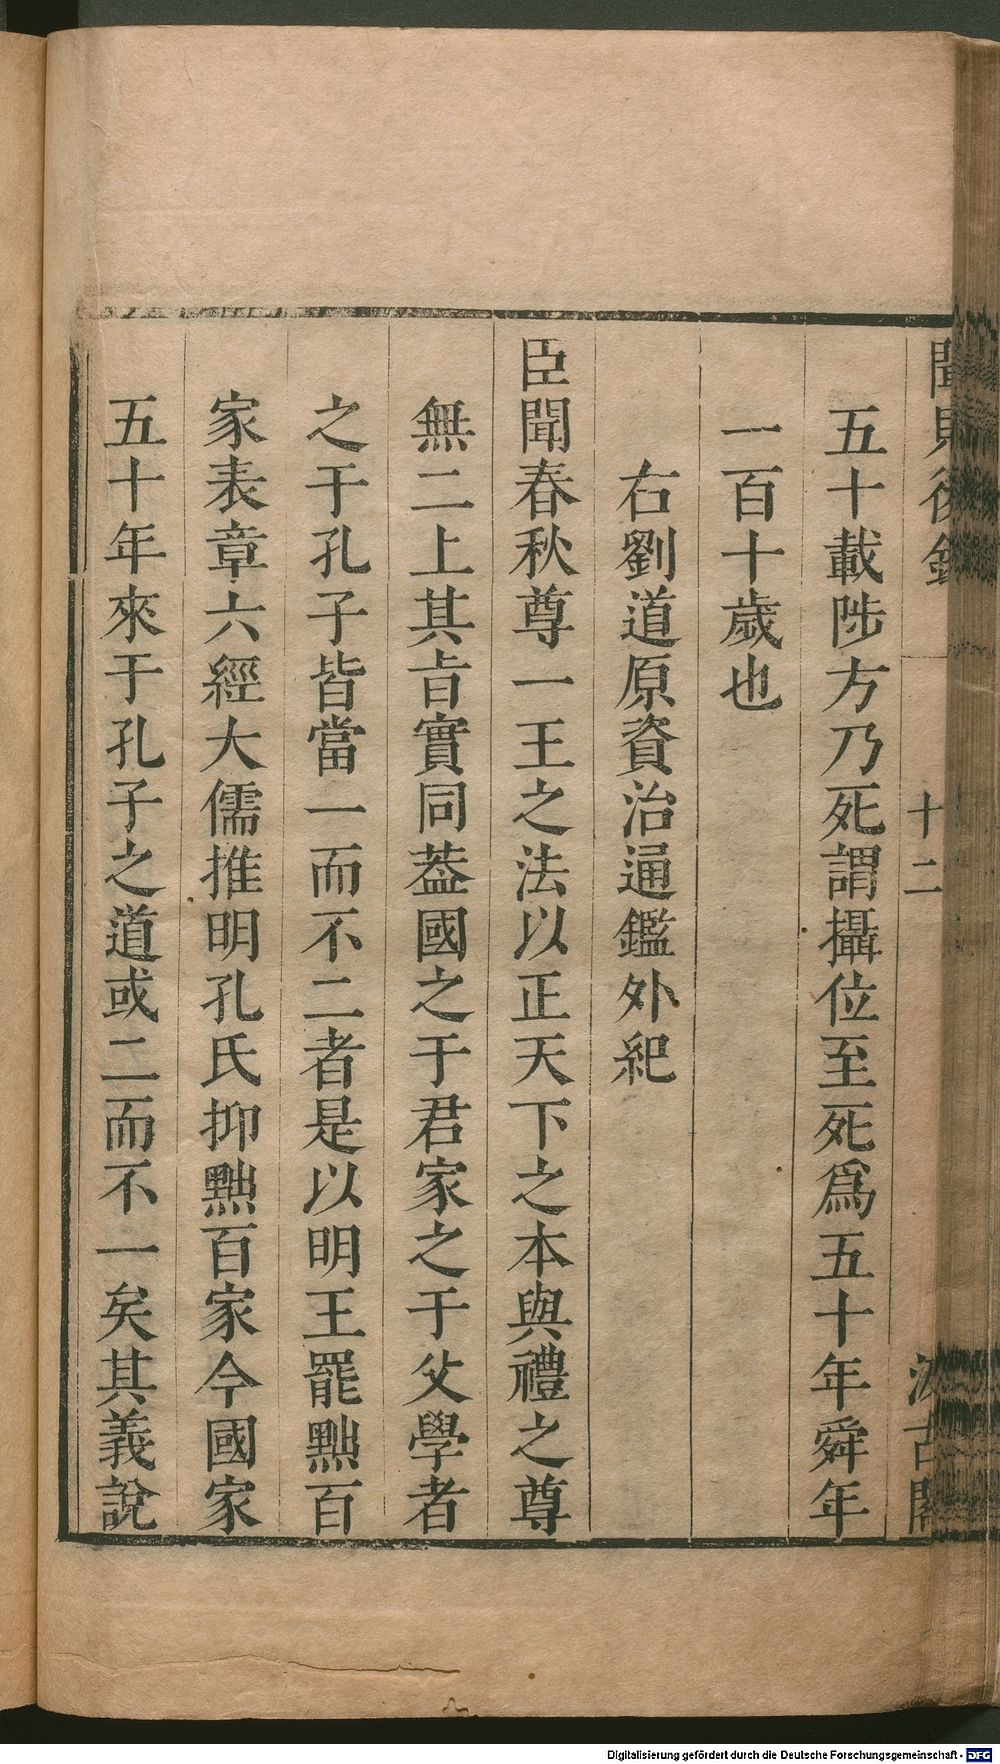 聞見後錄
十二
汲古閣
五十載陟方乃死謂攝位至死爲五十年舜年
一百十歲也
右劉道原資治通鑑外紀
臣聞春秋尊一王之法以正天下之本與禮之尊
無二上其㫖實同葢國之于君家之于父學者
之于孔子皆當一而不二者是以明王罷黜百
家表章六經大儒推明孔氏抑黜百家今國家
五十年來于孔子之道或二而不一矣其義說
Digitalisierung gefördert durch die Deutsche Forschungsgemeinschaft - DFG